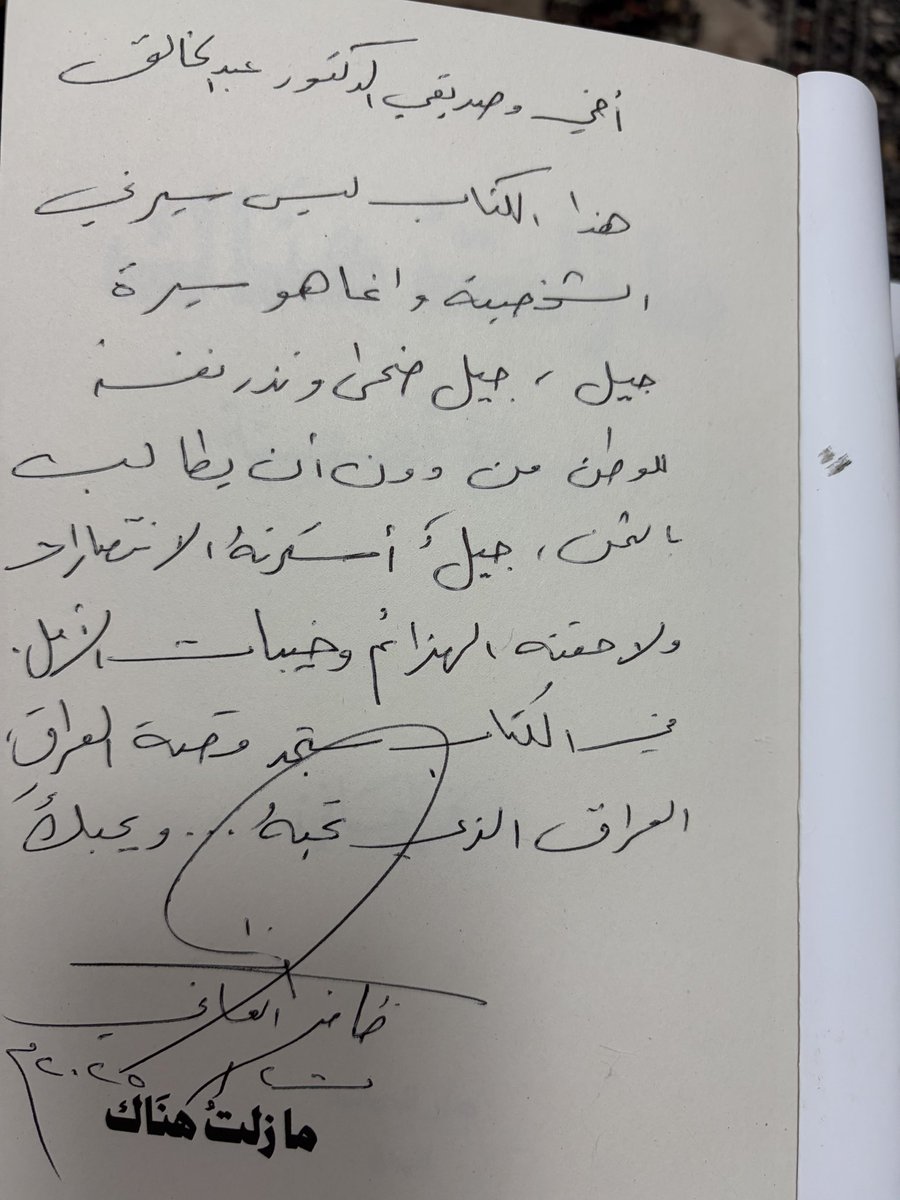 أخي وصديقي الدكتور عبدالخالق
هذا الكتاب ليس سيرتي
الشخصية وانما هو سيرة
جيل ، جيل ضحى ونذر نفسه
للوطن من دون أن يطالب
بالثمن ، جيلٌ أسكرتهُ الانتصارات
ولاحقته الهزائم وخيبات الأمل .
في الكتاب ستجد قصة العراقِ،
العراق الذي تحبهُ ... ويحبكَ
ظافر العاني
ت١ ٢٠٢٥م
ما زلتُ هنَاك